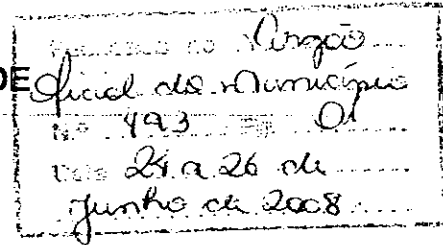 Publicado no Orgão
DE Oficial do Município
Nº 493 Pg 01
Data 24 a 26 de
junho de 2008